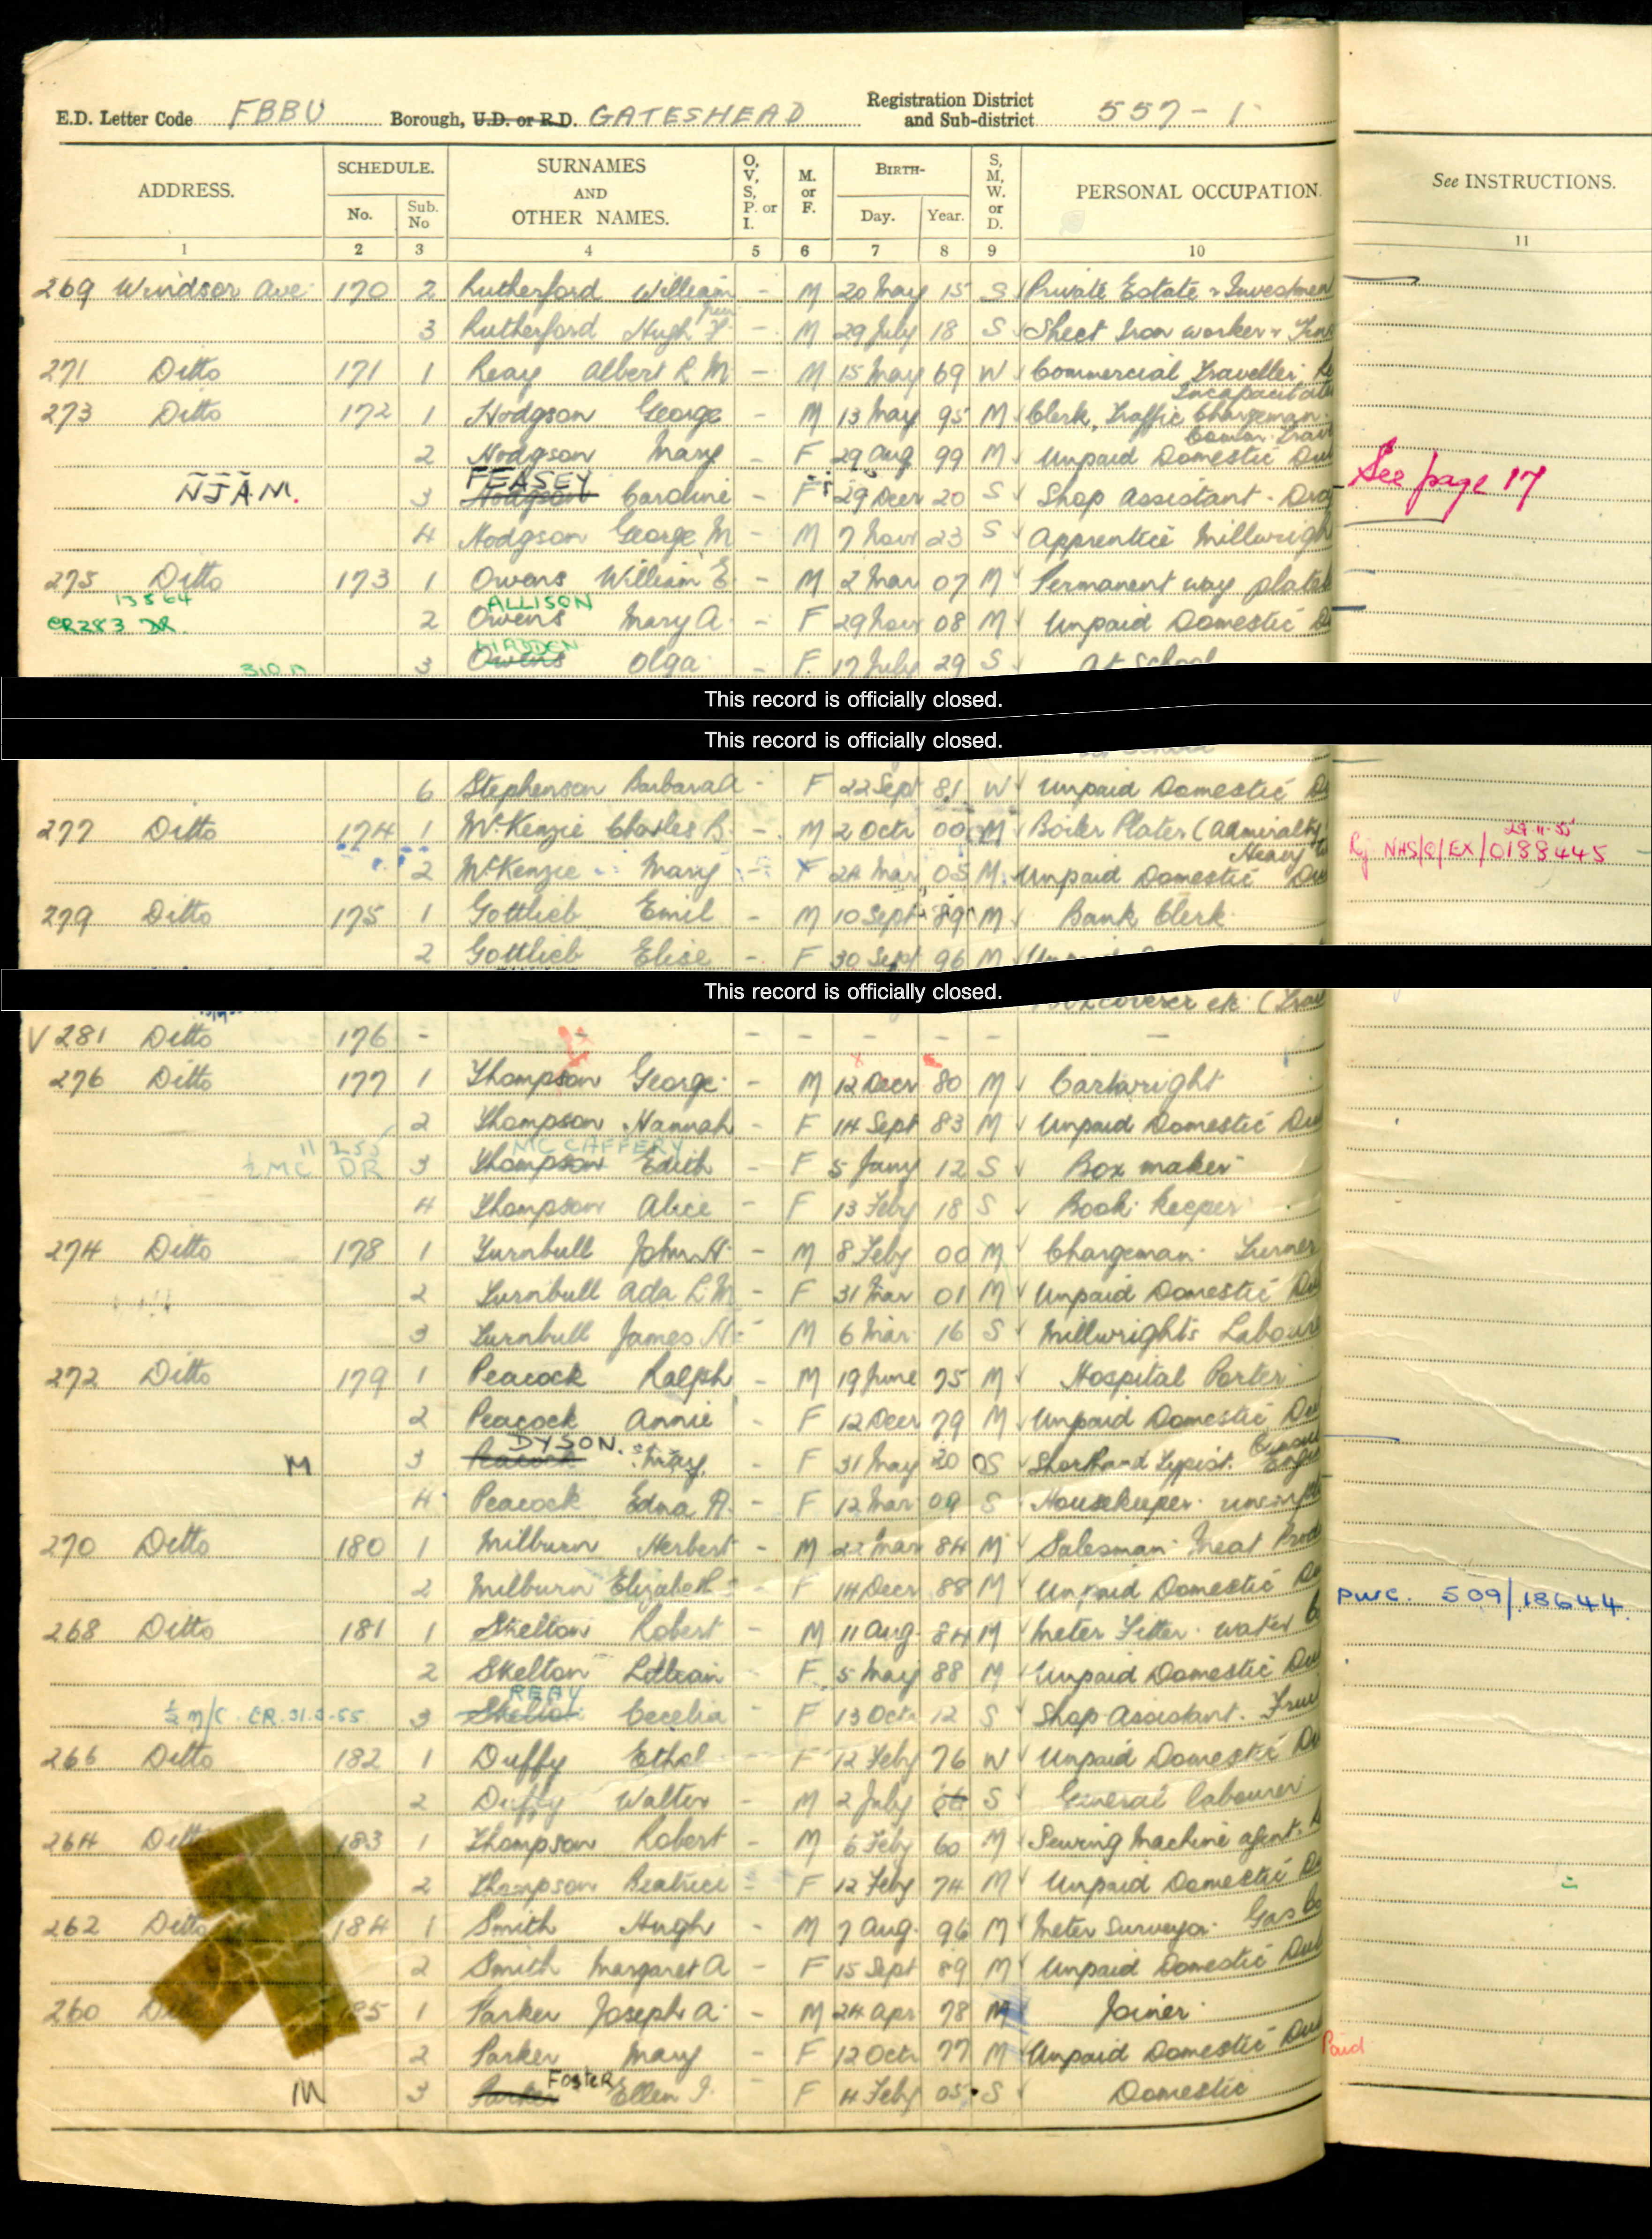 E.D. Letter Code FBBU Borough, U.D. or R.D. GATESHEAD Registration District and Sub-district 557-1
ADDRESS. SCHEDULE. SURNAMES AND OTHER NAMES. O, V, S, P. or I. M. or F. BIRTH- S, M, W, or D. PERSONAL OCCUPATION. See INSTRUCTIONS.
No. Sub. No Day. Year.
1 2 3 4 5 6 7 8 9 10 11
269 Windsor Ave 170 2 Rutherford William - M 20 May 15 S Private Estate & Investmen
3 Rutherford Hugh - M 29 July 18 S Sheet Iron worker
271 Ditto 171 1 Reay Albert R M - M 15 May 69 W Commercial Traveller
Incapacitate
273 Ditto 172 1 Hodgson George - M 13 May 95 M Clerk, Traffic Chargeman
2 Hodgson Mary - F 29 Aug 99 M Unpaid Domestic Du
See page 17
FEASEY
NJAM. 3 Hodgson Caroline - F 29 Decr 20 S Shop Assistant
4 Hodgson George M - M 7 Novr 23 S Apprentice Millwrigh
275 Ditto 173 1 Owens William E - M 2 Mar 07 M Permanent way platel
13 5 64 ALLISON
CR283 DR 2 Owens Mary A - F 29 Novr 08 M Unpaid Domestic D
MADDEN
3 Owens Olga - F 17 July 29 S At School
This record is officially closed.
This record is officially closed.
6 Stephenson Barbara A - F 22 Sept 81 W Unpaid Domestic D
277 Ditto 174 1 McKenzie Charles B. - M 2 Octr 00 M Boiler Plater (Admiralty
29-11-55
Heavy
Rj NHS/Q/EX/0188445
2 McKenzie Mary - F 24 Mar 05 M Unpaid Domestic Du
279 Ditto 175 1 Gottlieb Emil - M 10 Sept 89 M Bank Clerk
2 Gottlieb Elise - F 30 Sept 96 M
This record is officially closed.
V 281 Ditto 176 - - - - - - -
276 Ditto 177 1 Thompson George - M 12 Decr 80 M Cartwright
2 Thompson Hannah - F 14 Sept 83 M Unpaid Domestic Du
11 2 55 MC CAFFERY
½ MC DR 3 Thompson Edith - F 5 Jany 12 S Box maker
4 Thompson Alice - F 13 Feby 18 S Book Keeper
274 Ditto 178 1 Turnbull John H - M 8 Feby 00 M Chargeman Turner
2 Turnbull Ada L.M - F 31 Mar 01 M Unpaid Domestic Du
3 Turnbull James H - M 6 Mar 16 S Millwrights Laboure
272 Ditto 179 1 Peacock Ralph - M 19 June 75 M Hospital Porter
2 Peacock Annie - F 12 Decr 79 M Unpaid Domestic Du
DYSON.
M 3 Peacock Mary - F 31 May 20 S Shorthand Typist.
4 Peacock Edna A. - F 12 Mar 09 S Housekeeper
270 Ditto 180 1 Milburn Herbert - M 22 Mar 84 M Salesman Meat Prod
2 Milburn Elizabeth - F 14 Decr 88 M Unpaid Domestic Du
PWC. 509/18644
268 Ditto 181 1 Skelton Robert - M 11 Aug 84 M Meter Fitter water
2 Skelton Lillian - F 5 May 88 M Unpaid Domestic Du
REAY
½ M/C CR.31.3.55 3 Skelton Cecelia - F 13 Octr 12 S Shop Assistant. Frui
266 Ditto 182 1 Duffy Ethel - F 12 Feby 76 W Unpaid Domestic Du
2 Duffy Walter - M 2 July S General labourer
264 Ditto 183 1 Thompson Robert - M 6 Feby 60 M Sewing Machine agent
2 Thompson Beatrice - F 12 Feby 74 M Unpaid Domestic Du
262 Ditto 184 1 Smith Hugh - M 7 Aug 96 M Meter Surveyor Gas Co
2 Smith Margaret A - F 15 Sept 89 M Unpaid Domestic Dut
260 185 1 Parker Joseph A - M 24 Apr 78 M Joiner
2 Parker Mary - F 12 Octr 77 M Unpaid Domestic Dut Paid
FOSTER
M 3 Parker Ellen J. - F 4 Feby 05 S Domestic